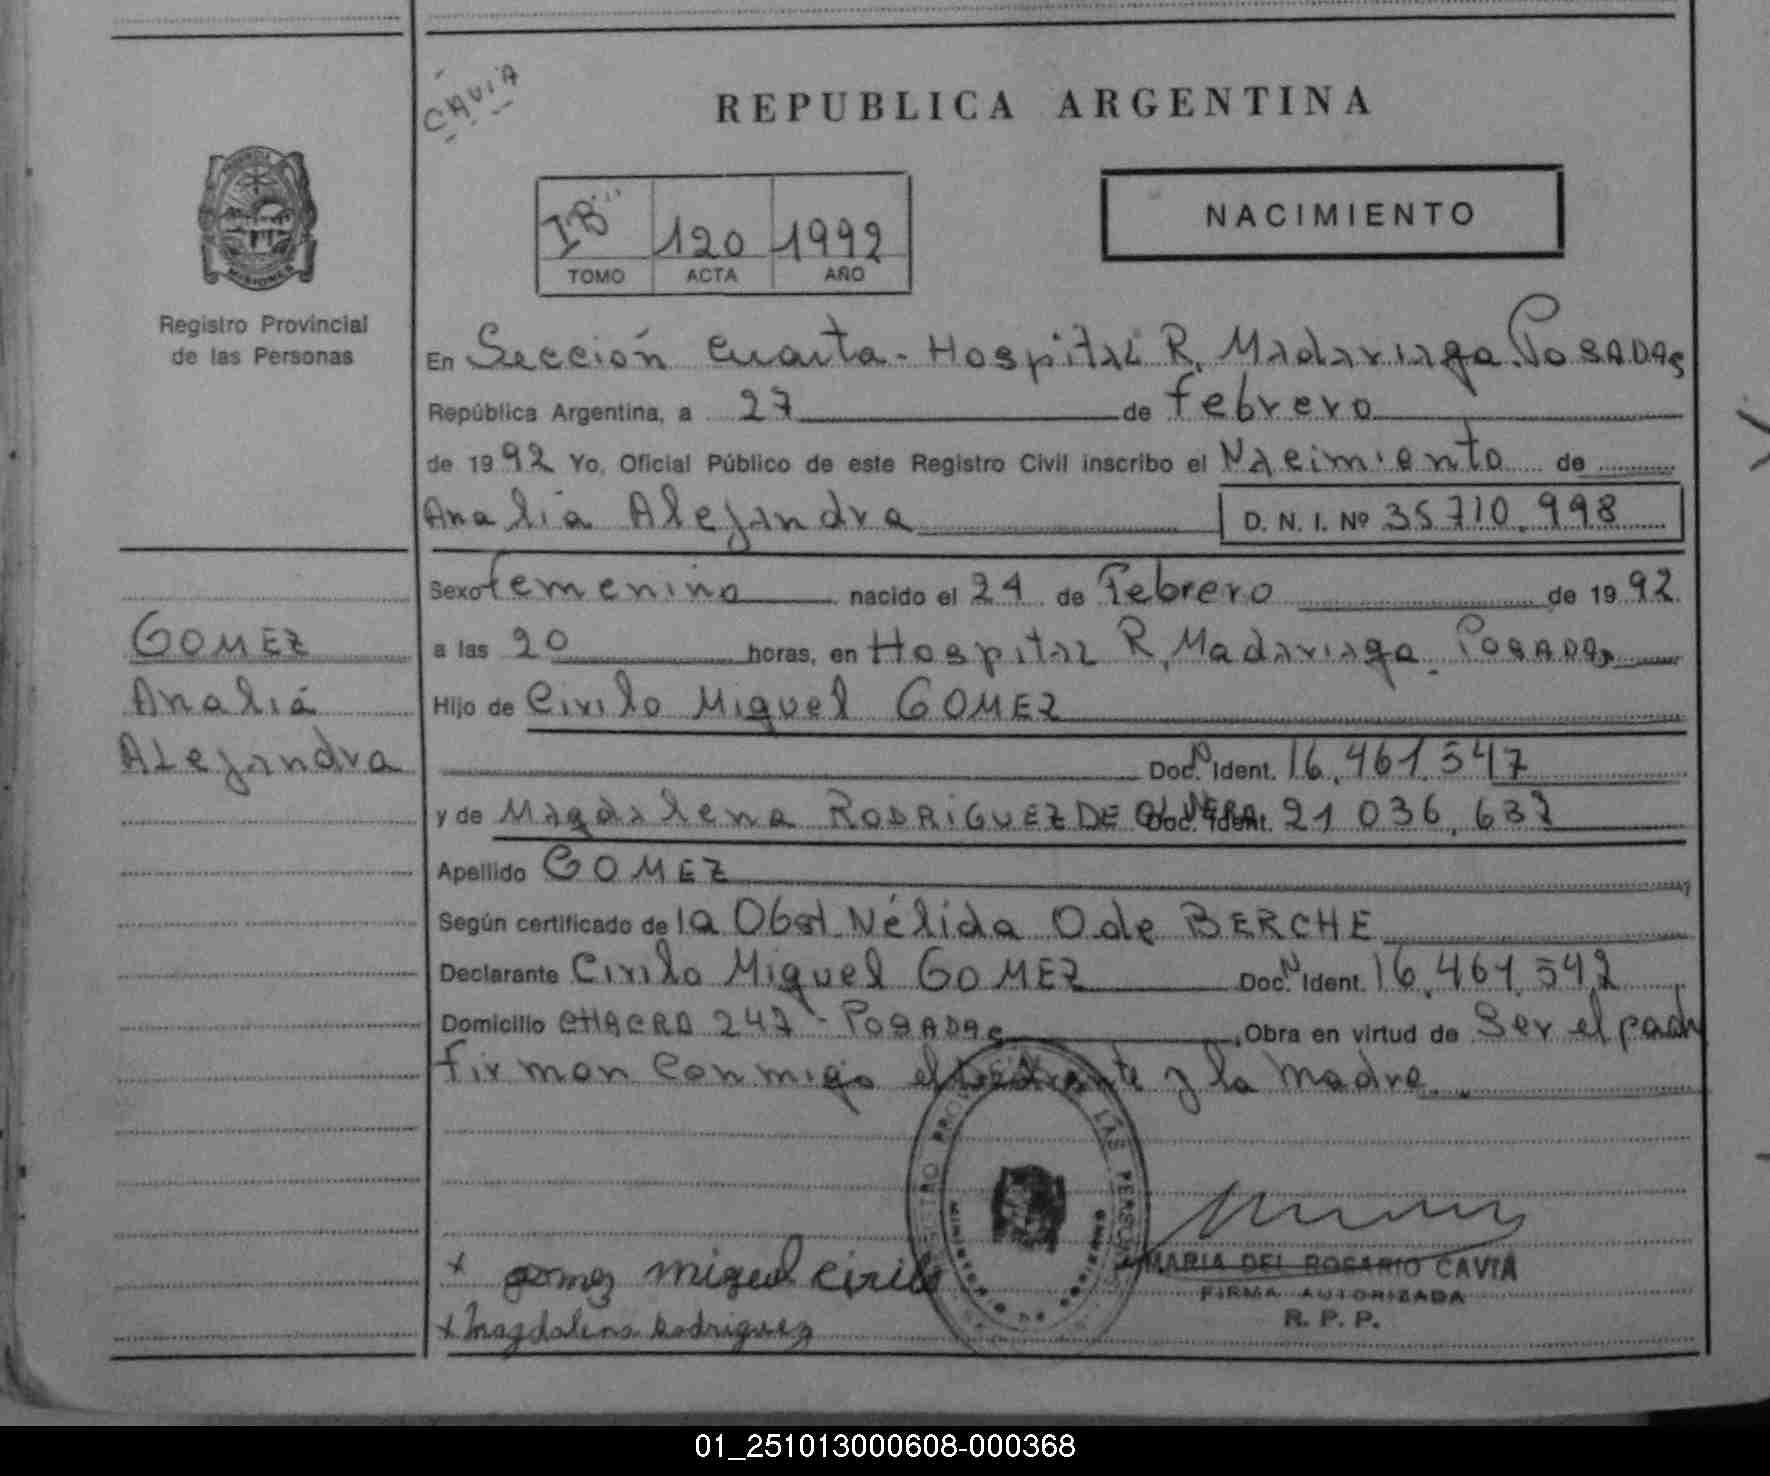 CAVIA
REPUBLICA ARGENTINA
IB"
120
1992
TOMO
ACTA
AÑO
NACIMIENTO
Registro Provincial
de las Personas
En Sección Cuarta - Hospital R. Madariaga. POSADAS
República Argentina, a 27 de febrero
de 1992 Yo, Oficial Público de este Registro Civil inscribo el Nacimiento de
Analia Alejandra D. N. I. Nº 35710.998
Sexo femenino nacido el 24 de Febrero de 1992
GOMEZ
Analia
Alejandra
a las 20 horas, en Hospital R. Madariaga. POSADAS
Hijo de Cirilo Miguel GOMEZ
Doc. N Ident. 16.461.547
y de Magdalena RODRIGUEZ DE Doc. Ident. 21 036.637
Apellido GOMEZ
Según certificado de la Obst Nélida O de BERCHE
Declarante Cirilo Miguel GOMEZ Doc. N Ident. 16.461.547
Domicilio CHACRA 247 - POSADAS, Obra en virtud de Ser el padr
firman conmigo el y la madre
MISIONES
REGISTRO PROVINCIAL DE LAS PERSONAS
gomez miguel cirilo
x Magdalena Rodriguez
MARIA DEL ROSARIO CAVIA
FIRMA AUTORIZADA
R. P. P.
01_251013000608-000368